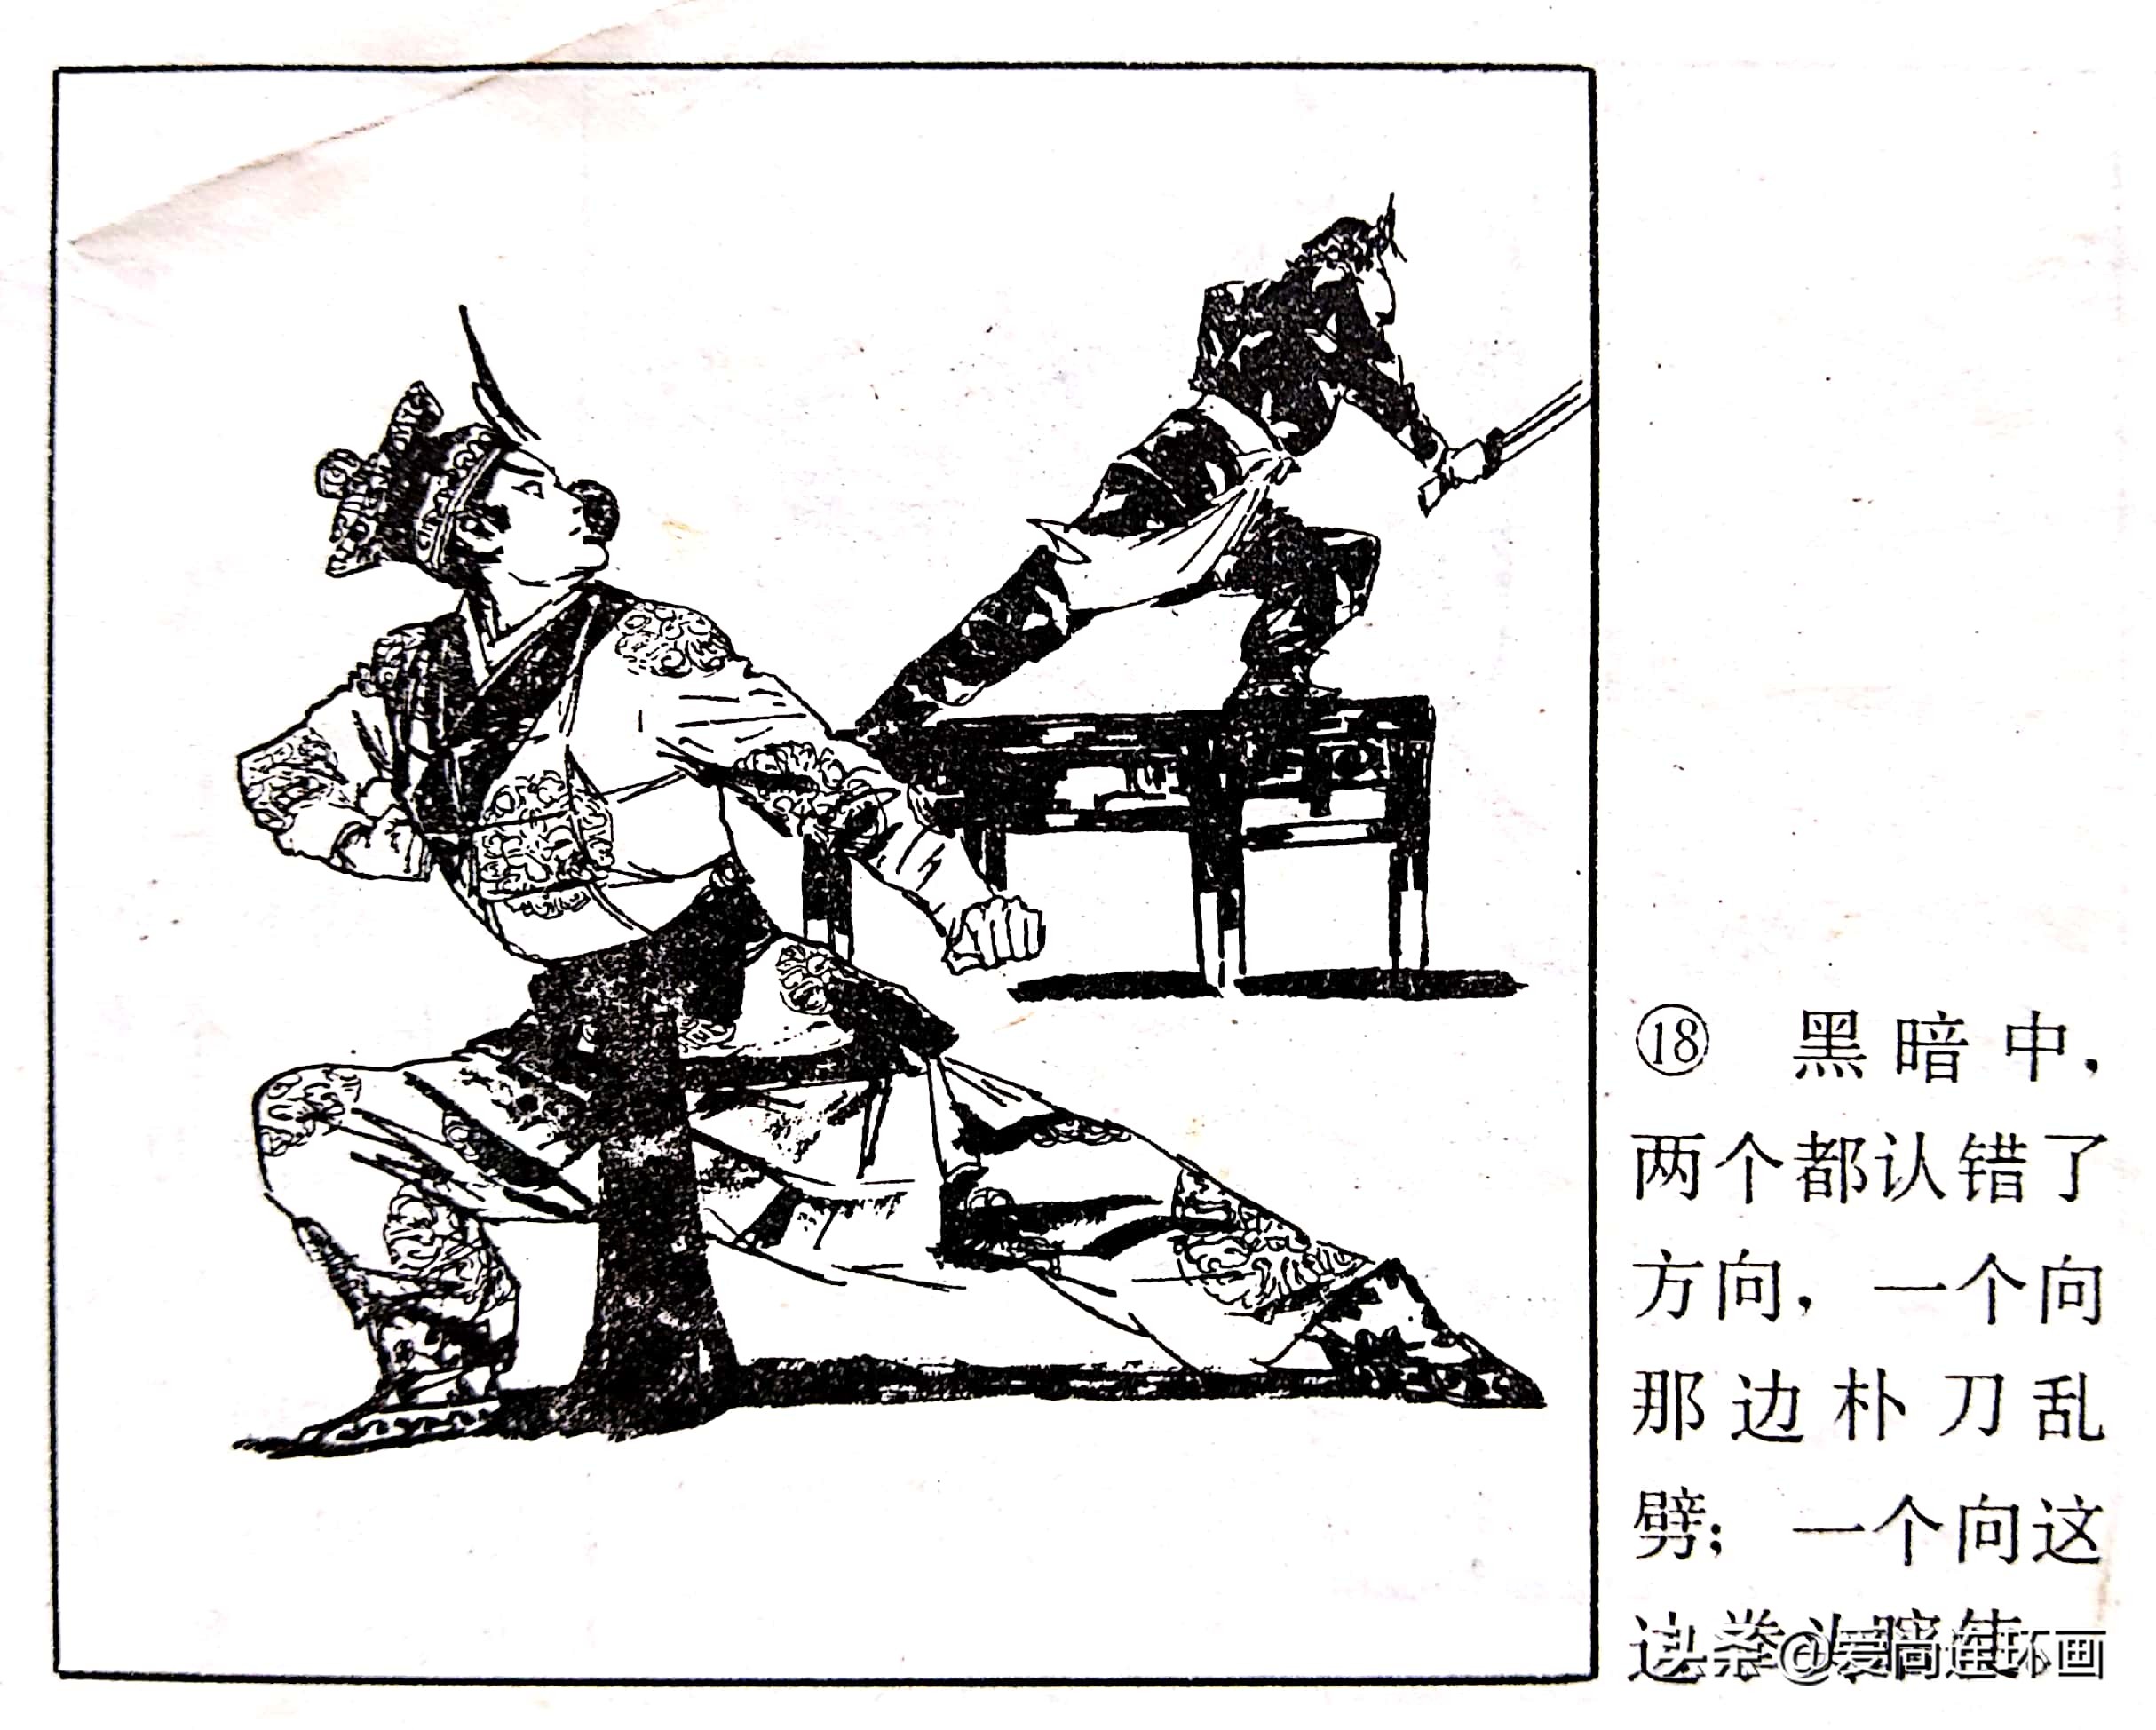 ⑱ 黑暗中，
两个都认错了
方向，一个向
那边朴刀乱
劈；一个向这
边拳
头条@爱尚连环画